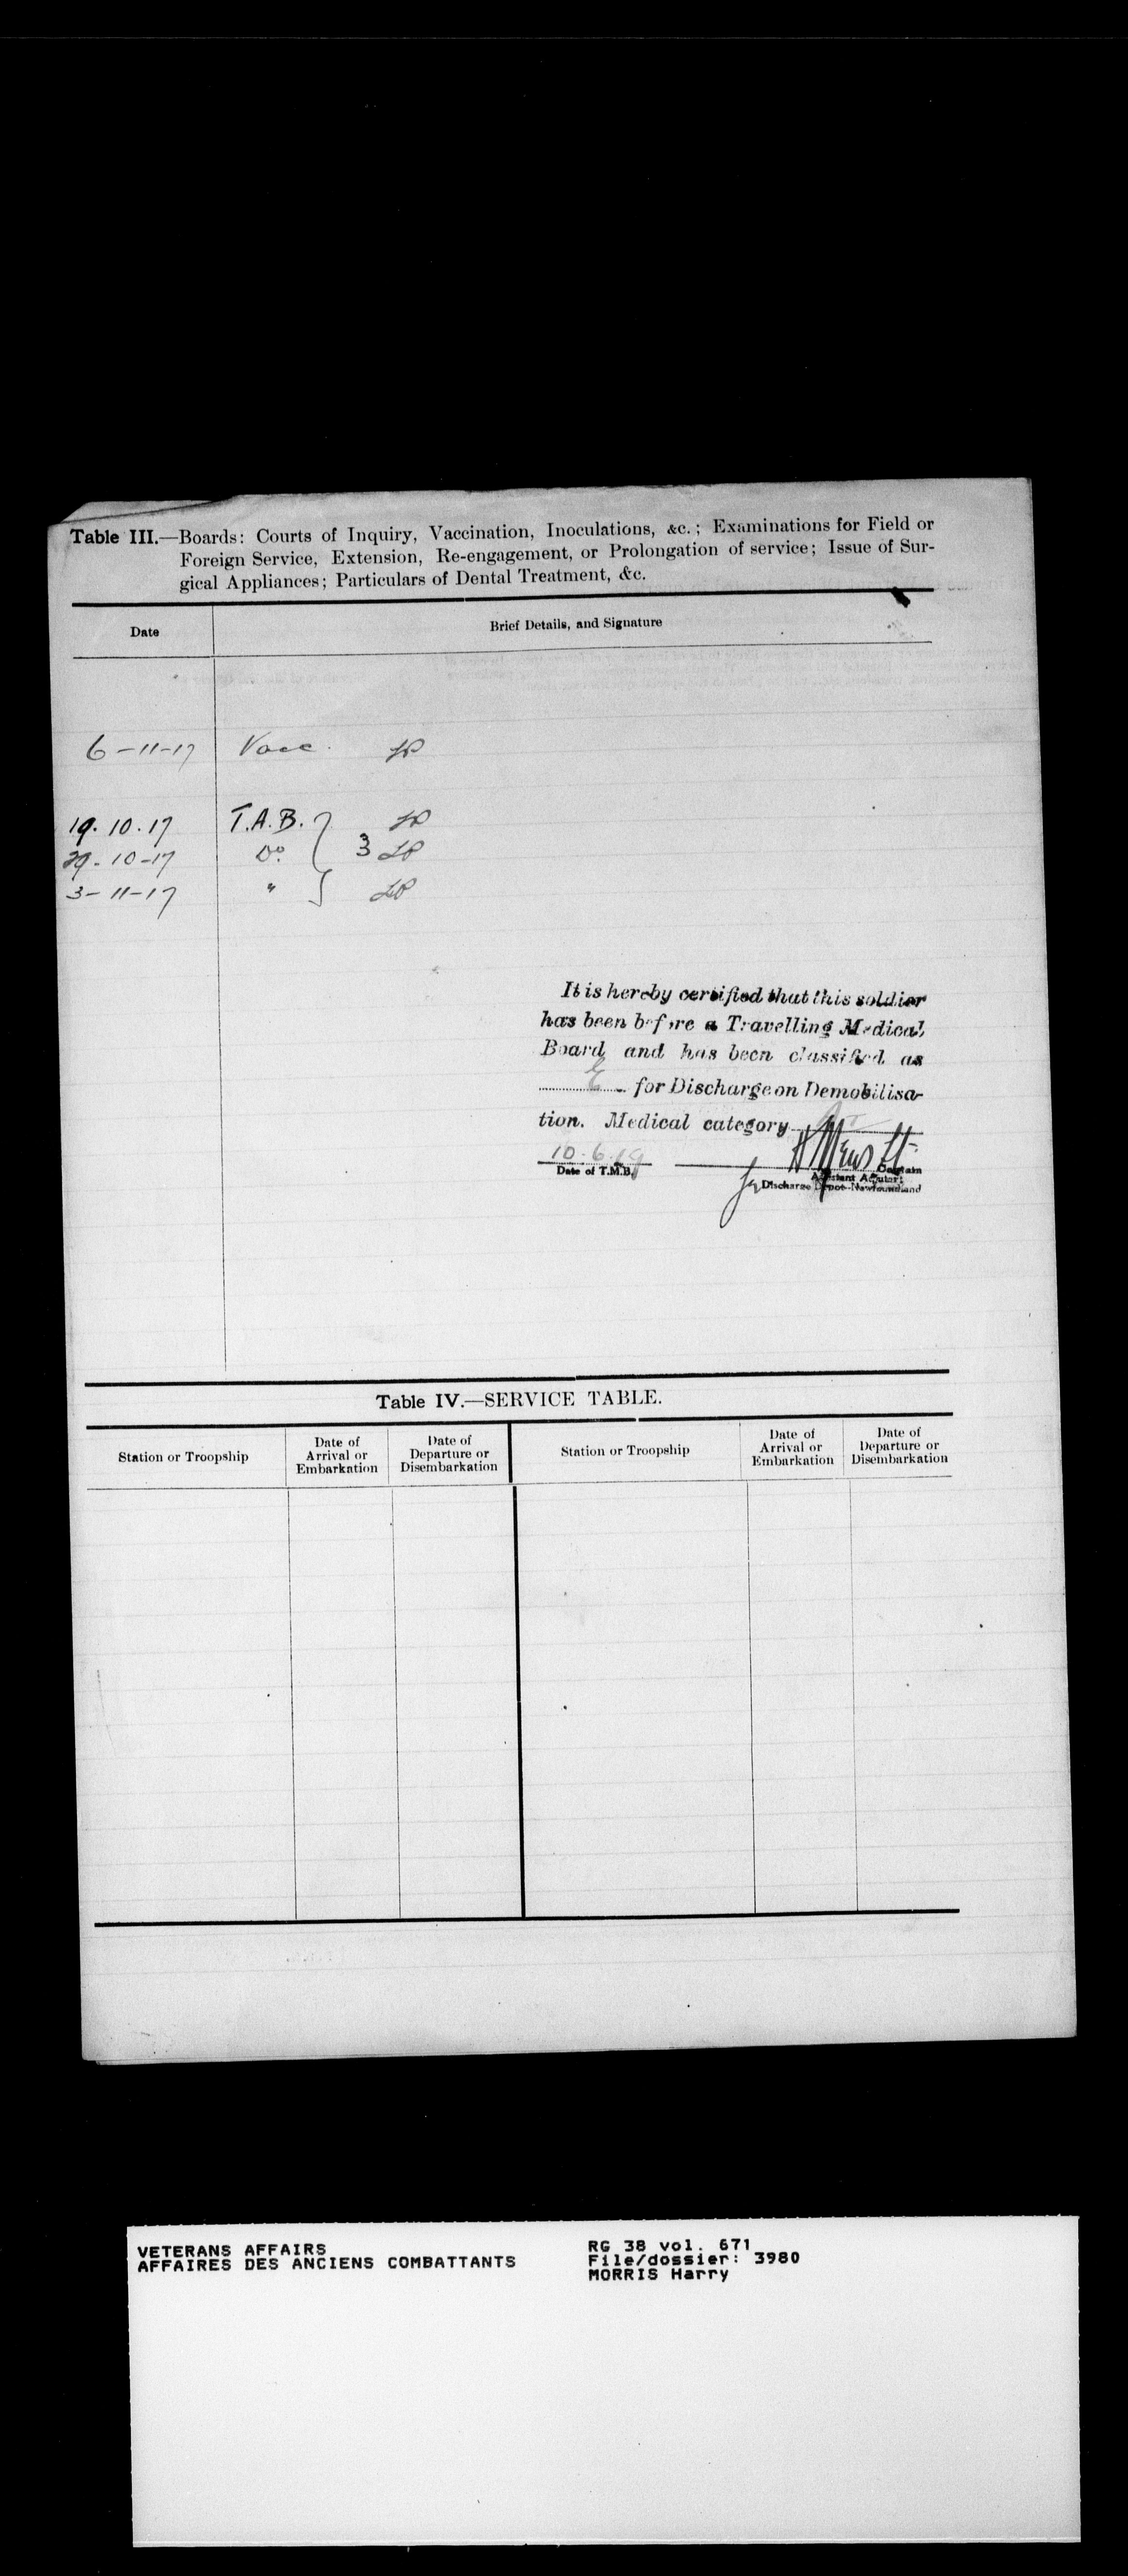 Table III.—Boards: Courts of Inquiry, Vaccination, Inoculations, &c.; Examinations for Field or
Foreign Service, Extension, Re-engagement, or Prolongation of service; Issue of Sur-
gical Appliances; Particulars of Dental Treatment, &c.
Date
Brief Details, and Signature
6-11-17 Vacc.
19.10.17 T.A.B.
29-10-17 Do 3
3-11-17 "
It is hereby certified that this soldier
has been before a Travelling Medical
Board and has been classified as
E for Discharge on Demobilisa-
tion. Medical category
10.6.19
Date of T.M.B.
Captain
Assistant Adjutant
for Discharge Depot Newfoundland
Table IV.—SERVICE TABLE.
Station or Troopship
Date of
Arrival or
Embarkation
Date of
Departure or
Disembarkation
Station or Troopship
Date of
Arrival or
Embarkation
Date of
Departure or
Disembarkation
VETERANS AFFAIRS
AFFAIRES DES ANCIENS COMBATTANTS
RG 38 vol. 671
File/dossier: 3980
MORRIS Harry